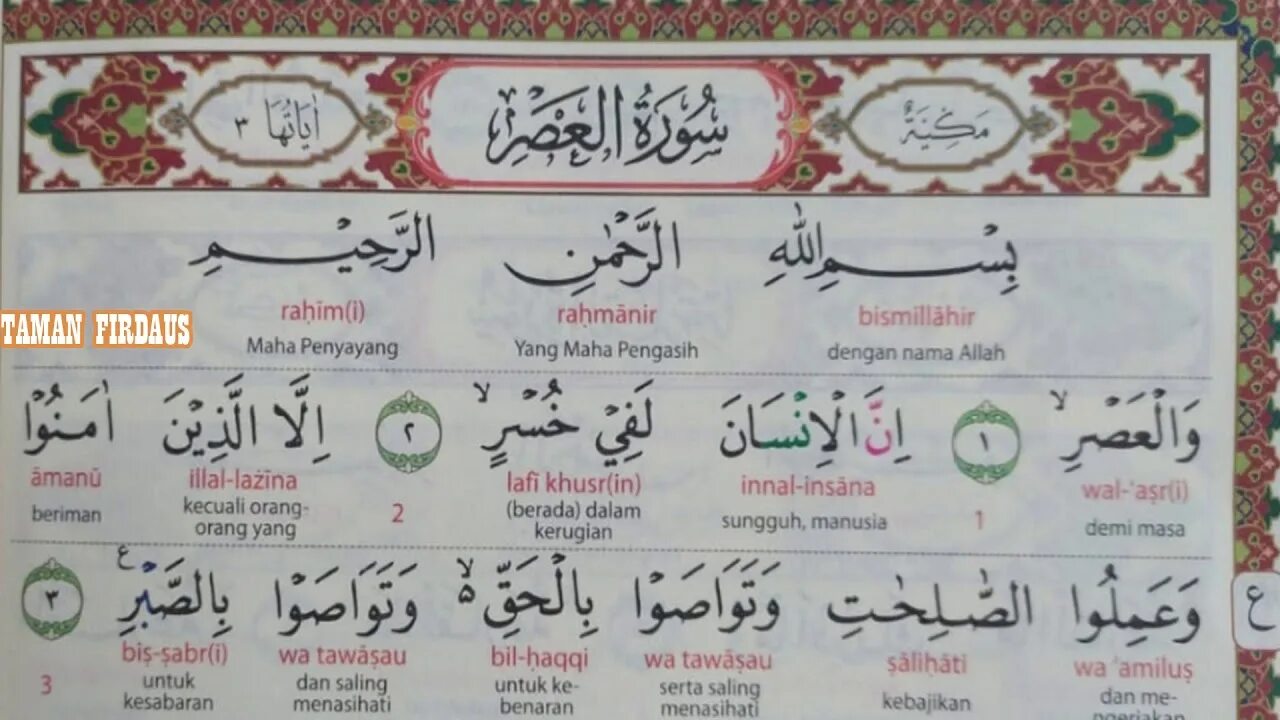 مَكِّيَّةٌ سُورَةُ الْعَصْرِ اٰيَاتُهَا ٣
بِسْمِ اللّٰهِ الرَّحْمٰنِ الرَّحِيْمِ
bismillāhir raḥmānir raḥīm(i)
dengan nama Allah Yang Maha Pengasih Maha Penyayang
TAMAN FIRDAUS
وَالْعَصْرِۙ ١ اِنَّ الْاِنْسَانَ لَفِيْ خُسْرٍۙ ٢ اِلَّا الَّذِيْنَ اٰمَنُوْا
wal-‘aṣr(i) 1 innal-insāna lafī khusr(in) 2 illal-lażīna āmanū
demi masa sungguh, manusia (berada) dalam kerugian kecuali orang-orang yang beriman
وَعَمِلُوا الصّٰلِحٰتِ وَتَوَاصَوْا بِالْحَقِّ ەۙ وَتَوَاصَوْا بِالصَّبْرِ ࣖ ٣
ع
wa ‘amiluṣ ṣāliḥāti wa tawāṣau bil-ḥaqqi wa tawāṣau biṣ-ṣabr(i) 3
dan me- kebajikan serta saling menasihati untuk ke-benaran dan saling menasihati untuk kesabaran